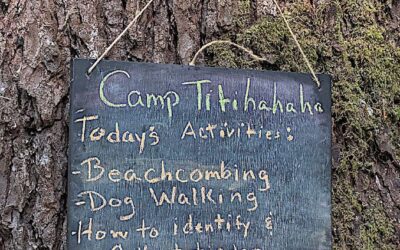 Camp Titihahaha
Today's Activities:
-Beachcombing
-Dog Walking
-How to identify &